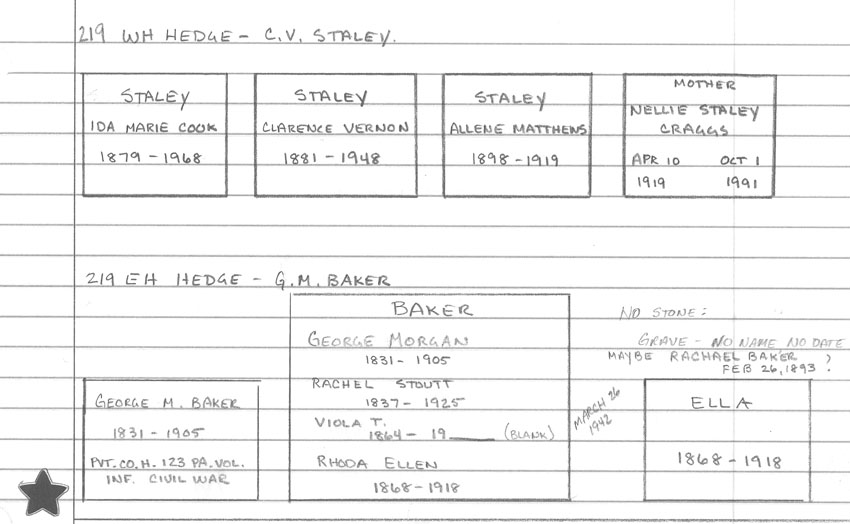 219 WH HEDGE - C.V. STALEY.
STALEY
IDA MARIE COOK
1879 - 1968
STALEY
CLARENCE VERNON
1881 - 1948
STALEY
ALLENE MATTHEWS
1898 - 1919
MOTHER
NELLIE STALEY
CRAGGS
APR 10 OCT 1
1919 1991
219 EH HEDGE - G.M. BAKER
GEORGE M. BAKER
1831 - 1905
PVT. CO. H. 123 PA. VOL.
INF. CIVIL WAR
BAKER
GEORGE MORGAN
1831 - 1905
RACHEL STOUTT
1837 - 1925
VIOLA T.
1864 - 19____ (BLANK)
RHODA ELLEN
1868 - 1918
MARCH 26
1942
NO STONE:
GRAVE - NO NAME, NO DATE
MAYBE RACHAEL BAKER ?
FEB 26, 1893
ELLA
1868 - 1918